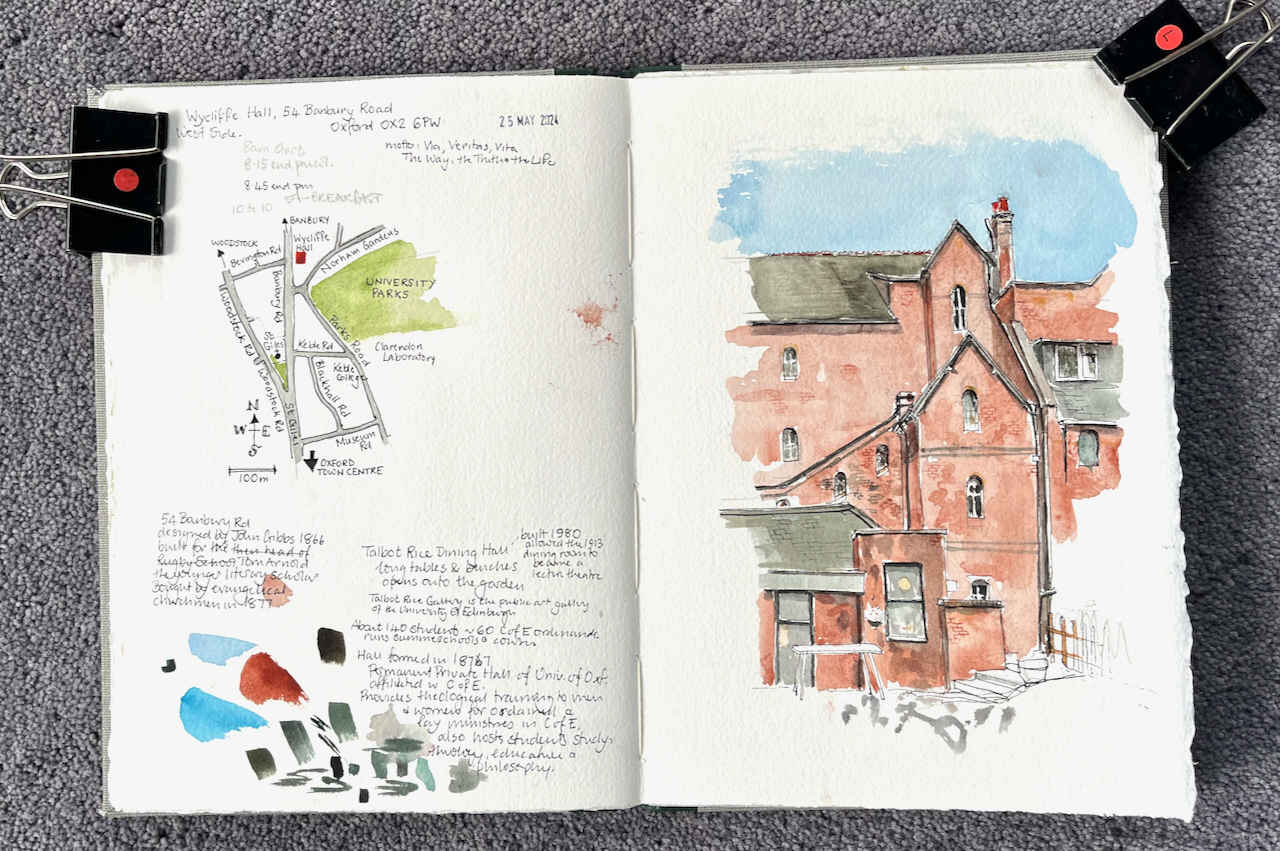 Wycliffe Hall, 54 Banbury Road
Oxford OX2 6PW
West Side.
25 MAY 2024
motto: Via, Veritas, Vita
The Way, the Truth & the Life
8am start
8.15 end pencil.
8.45 end pen
10 to 10
BREAKFAST
BANBURY
WOODSTOCK
Wycliffe
Hall
Norham Gardens
Bevington Rd
Banbury Rd
UNIVERSITY
PARKS
Woodstock Rd
Parks Road
St Giles
Keble Rd
Clarendon
Laboratory
Keble
College
Woodstock Rd
Blackhall Rd
St Giles
Museum
Rd
N
W E
S
100m
OXFORD
TOWN CENTRE
54 Banbury Rd
designed by John Gibbs 1866
built for the then head of
Rugby School Tom Arnold
the younger literary scholar
Bought by evangelical
churchmen in 1877
Talbot Rice Dining Hall
long tables & benches
opens onto the garden
built 1980
allowed the 1913
dining room to
become a
lecture theatre
Talbot Rice Gallery is the public art gallery
of the University of Edinburgh
About 140 students ~60 CofE ordinands.
runs summer schools &
Hall formed in 1877
Permanent Private Hall of Univ. of Oxf.
affiliated w CofE.
Provides theological training to men
& women for ordained &
lay ministries in CofE,
also hosts students study
theology, education &
philosophy.
L